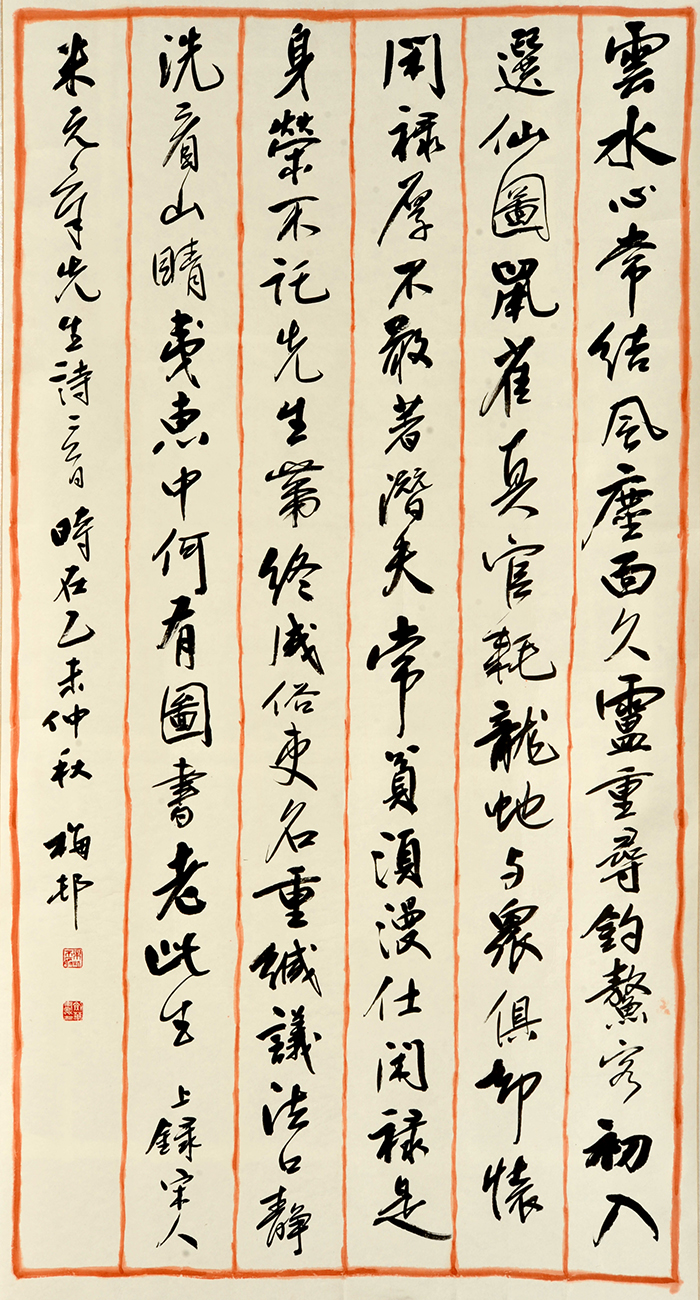 雲水心常結風塵面久盧重尋釣鰲客初入
選仙圖鼠雀真官耗龍虵与衆俱却懷
閑禄厚不敢著潛夫常貧須漫仕閑禄是
身榮不託先生苐終成俗吏名重緘議法口靜
洗看山睛夷惠中何有圖書老此生 上録宋人
米元章先生詩二首 時在乙未仲秋 梅邨